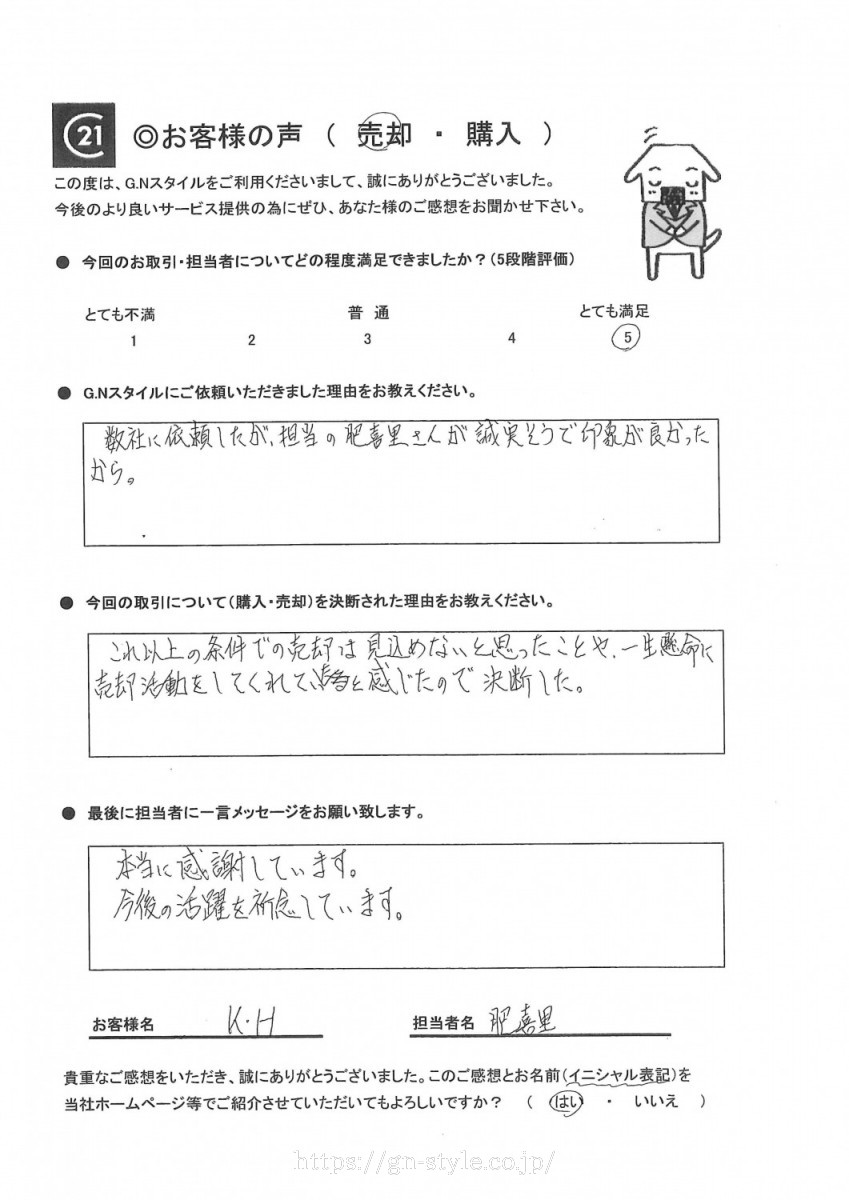 21 ◎お客様の声 ( 売却 ・ 購入 )
この度は、G.Nスタイルをご利用くださいまして、誠にありがとうございました。
今後のより良いサービス提供の為にぜひ、あなた様のご感想をお聞かせ下さい。
● 今回のお取引・担当者についてどの程度満足できましたか？(5段階評価)
とても不満 普 通 とても満足
1 2 3 4 5
● G.Nスタイルにご依頼いただきました理由をお教えください。
数社に依頼したが、担当の肥喜里さんが誠実そうで印象が良かった
から。
● 今回の取引について(購入・売却)を決断された理由をお教えください。
これ以上の条件での売却は見込めないと思ったことや、一生懸命に
売却活動をしてくれていると感じたので決断した。
● 最後に担当者に一言メッセージをお願い致します。
本当に感謝しています。
今後の活躍を祈念しています。
お客様名 K・H 担当者名 肥喜里
貴重なご感想をいただき、誠にありがとうございました。このご感想とお名前(イニシャル表記)を
当社ホームページ等でご紹介させていただいてもよろしいですか？ ( はい ・ いいえ )
https://gn-style.co.jp/